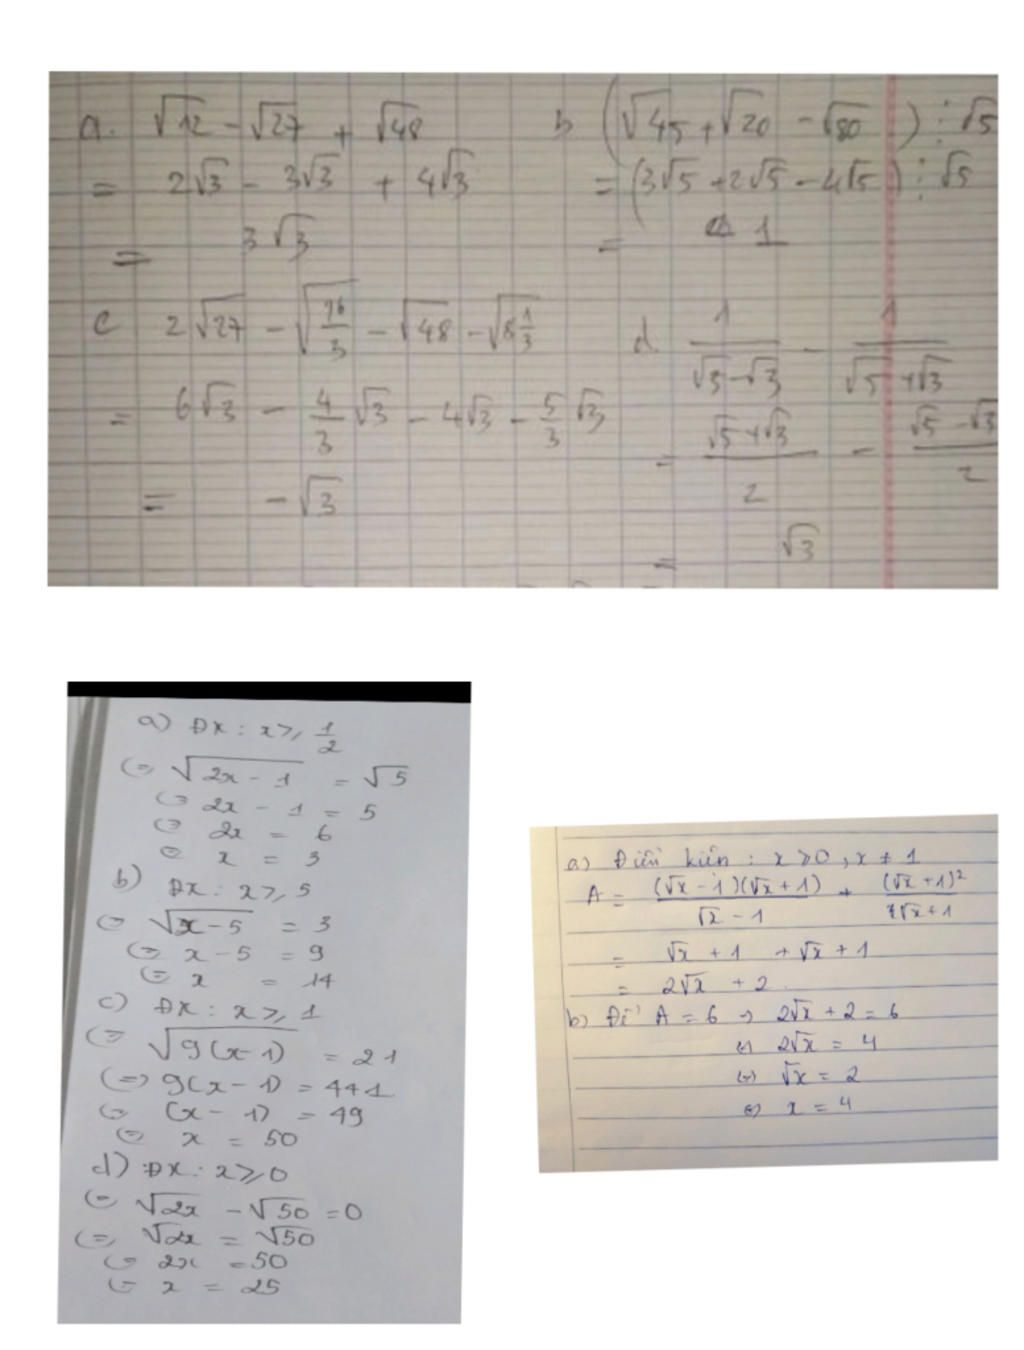 a. √12 - √27 + √48
= 2√3 - 3√3 + 4√3
= 3√3
b (√45 + √20 - √80) : √5
= (3√5 + 2√5 - 4√5) : √5
= 1
c 2√27 - √(16/3) - √48 - √(8 1/3)
= 6√3 - 4/3 √3 - 4√3 - 5/3 √3
= -√3
d. 1/(√5 - √3) - 1/(√5 + √3)
= (√5 + √3)/2 - (√5 - √3)/2
= √3
a) ĐK : x ≥ 1/2
(=) √(2x - 1) = √5
(=) 2x - 1 = 5
(=) 2x = 6
(=) x = 3
b) ĐK : x ≥ 5
(=) √(x - 5) = 3
(=) x - 5 = 9
(=) x = 14
c) ĐK : x ≥ 1
(=) √(9(x - 1)) = 21
(=) 9(x - 1) = 441
(=) (x - 1) = 49
(=) x = 50
d) ĐK : x ≥ 0
(=) √2x - √50 = 0
(=) √2x = √50
(=) 2x = 50
(=) x = 25
a) Điều kiên : x ≥ 0, x ≠ 1
A = (√x - 1)(√x + 1)/(√x - 1) + (√x + 1)²/(√x + 1)
= √x + 1 + √x + 1
= 2√x + 2
b) Để A = 6 → 2√x + 2 = 6
(=) 2√x = 4
(=) √x = 2
(=) x = 4